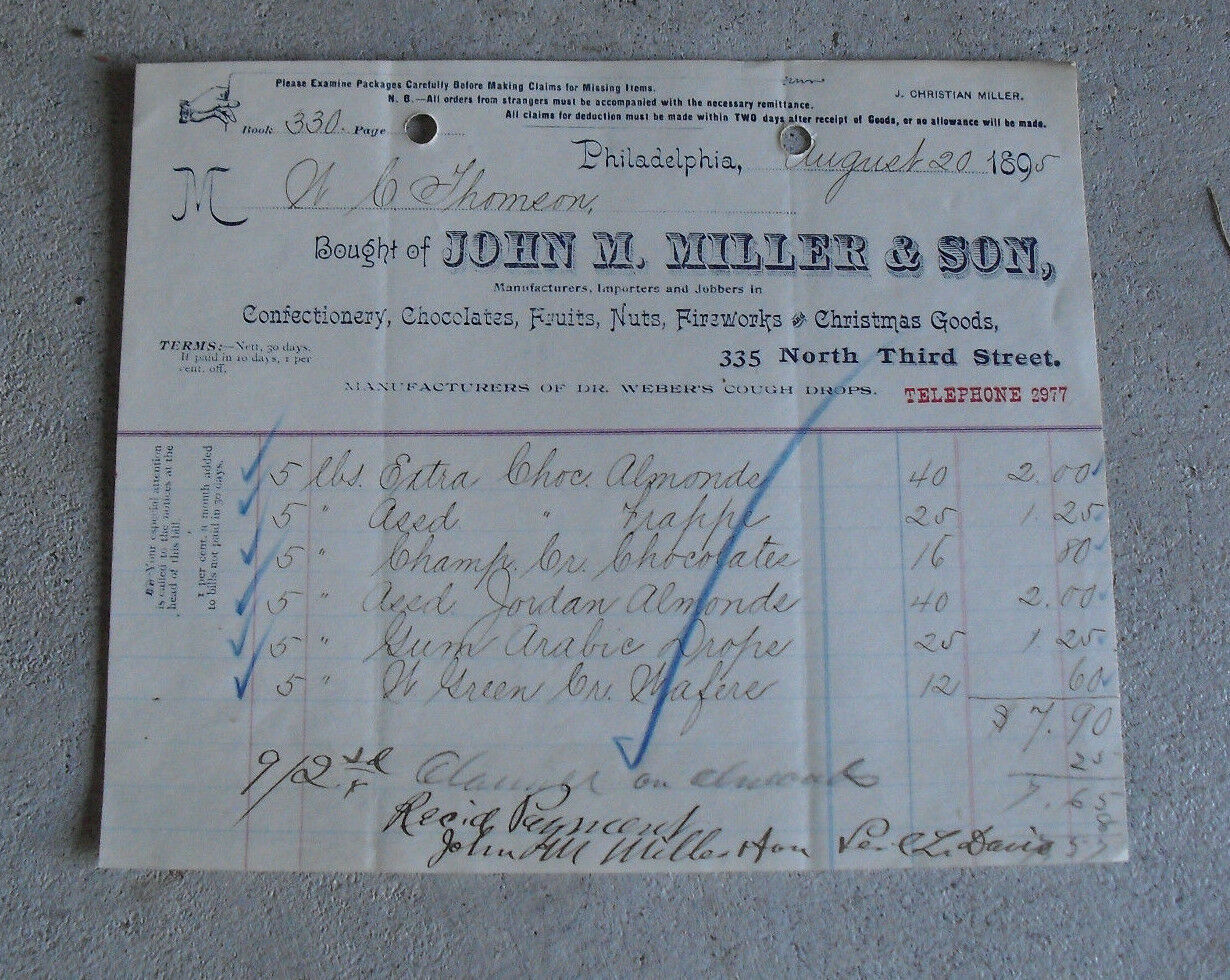 Please Examine Packages Carefully Before Making Claims for Missing Items.
N. B.—All orders from strangers must be accompanied with the necessary remittance.
J. CHRISTIAN MILLER.
All claims for deduction must be made within TWO days after receipt of Goods, or no allowance will be made.
Book 330. Page
Philadelphia, August 20 1895
M W C Thomson,
Bought of JOHN M. MILLER & SON,
Manufacturers, Importers and Jobbers in
Confectionery, Chocolates, Fruits, Nuts, Fireworks and Christmas Goods,
TERMS:—Nett, 30 days.
If paid in 10 days, 1 per
cent. off.
335 North Third Street.
MANUFACTURERS OF DR. WEBER'S COUGH DROPS.
TELEPHONE 2977
Your especial attention
is called to the notices at the
head of this bill.
1 per cent. a month added
to bills not paid in 30 days.
5 lbs. Extra Choc. Almonds 40 2.00
5 " Assd. " Frappe 25 1.25
5 " Champ. Cr. Chocolates 16 80
5 " Assd Jordan Almonds 40 2.00
5 " Gum Arabic Drops 25 1.25
5 " W Green Cr. Wafers 12 60
$ 7.90
25
9/2 on almonds
7.65
8
Rec'd Payment
John M Miller & Son Per C L Davis 7 57